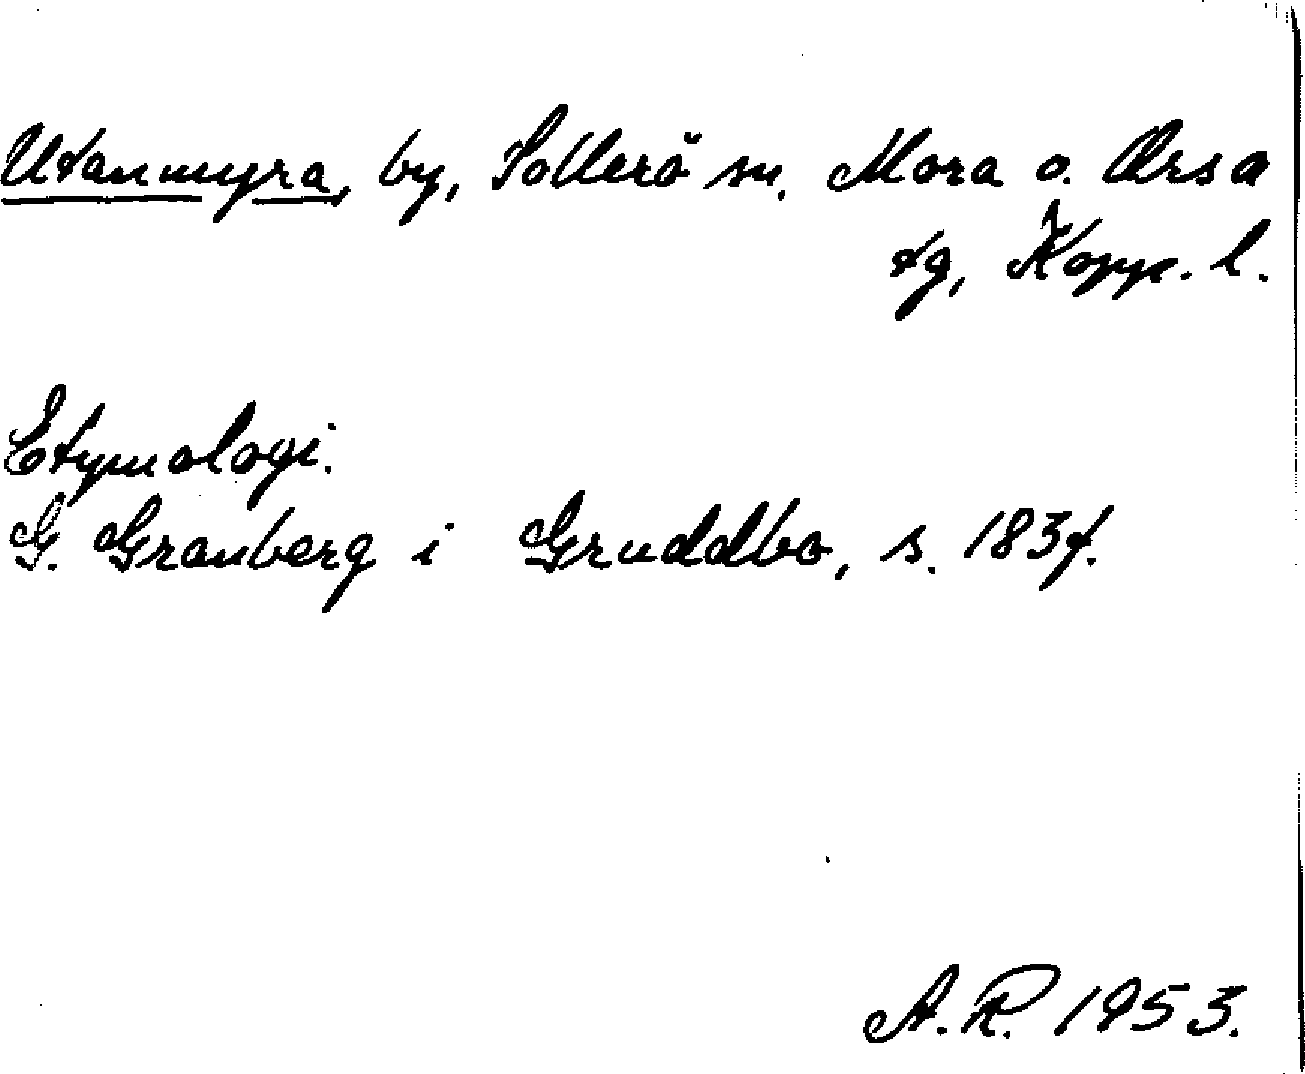 Utanmyra, by, Sollerö sn. Mora o. Orsa
tg, Kopp. l.
Etymologi.
G. Granberg i Gruddbo, s. 183f.
A.R. 1953.